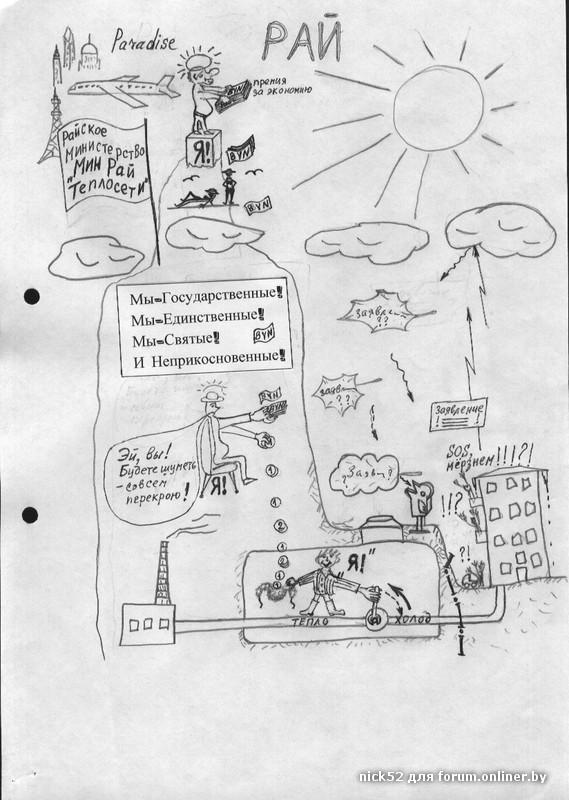 Paradise
РАЙ
BYN
премия
за экономию
Райское
Министерство
"МИН Рай
Теплосети"
Я!
BYN
BYN
Мы=Государственные!
Мы=Единственные!
Мы=Святые!
BYN
И Неприкосновенные!
Заявлен
??
BYN
BYN
Заявл-
??
Заявление
SOS,
мёрзнем!!!?!
Эй, вы!
Будете шуметь
-совсем
перекрою!
Я!
Заявл?
!!?
?!
1
1
2
1
2
1
"Я!"
ТЕПЛО
ХОЛОД
nick52 для forum.onliner.by